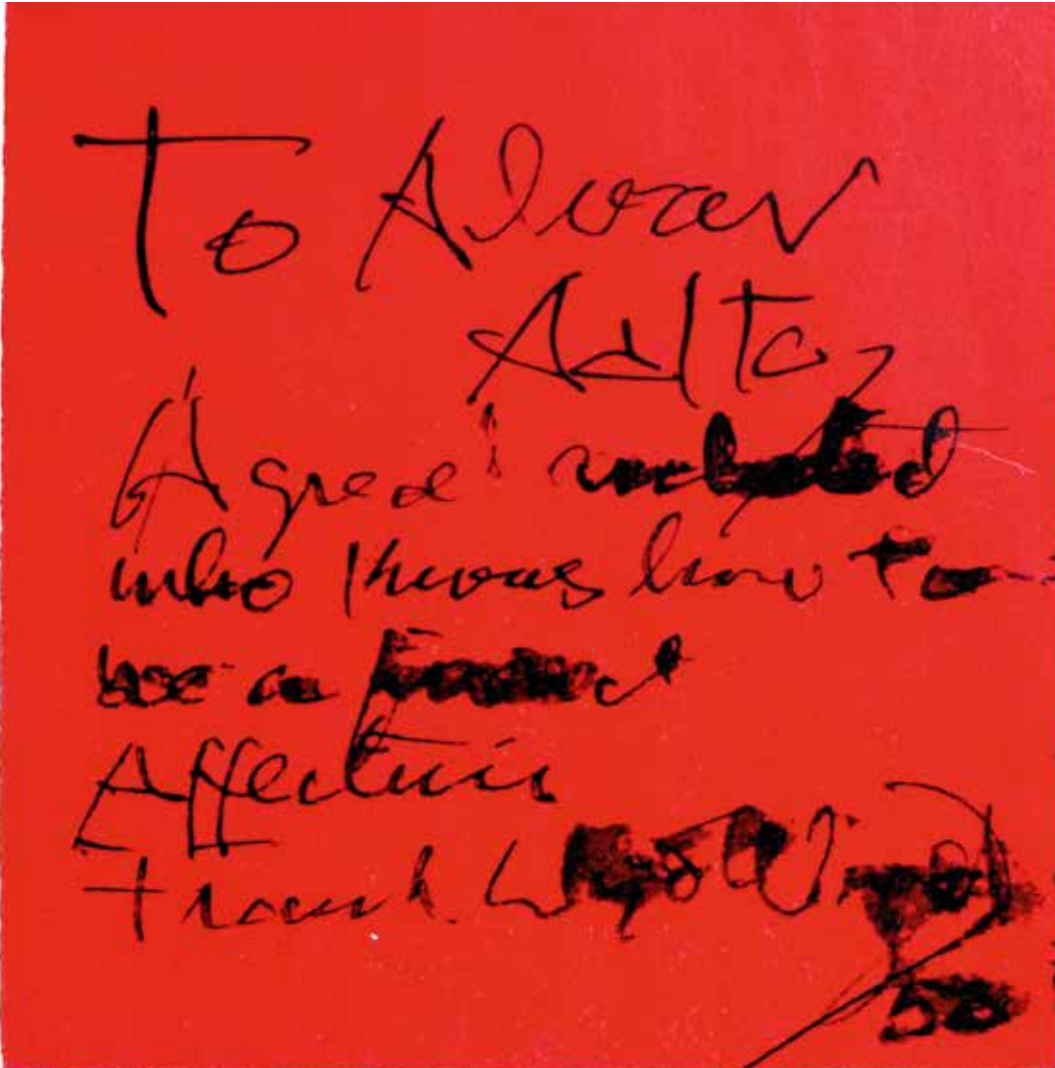 To Alvar
Aalto,
A great architect
who knows how to
be a friend
Affection
Frank Lloyd Wright
50